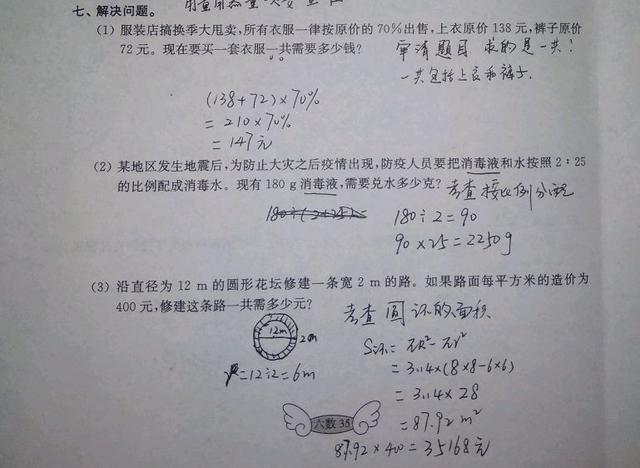 七、解决问题。
(1) 服装店搞换季大甩卖,所有衣服一律按原价的70%出售,上衣原价138元,裤子原价
72元。现在要买一套衣服一共需要多少钱?
审清题目 求的是一共!
一共包括上衣和裤子.
(138+72)×70%
=210×70%
=147元
(2) 某地区发生地震后,为防止大灾之后疫情出现,防疫人员要把消毒液和水按照2:25
的比例配成消毒水。现有180g消毒液,需要兑水多少克?
考查按比例分配
180÷(2+25)
180÷2=90
90×25=2250g
(3) 沿直径为12m的圆形花坛修建一条宽2m的路。如果路面每平方米的造价为
400元,修建这条路一共需多少元?
考查圆环的面积
12m
2m
r=12÷2=6m
S环=πR²-πr²
=3.14×(8×8-6×6)
=3.14×28
=87.92m²
六数35
87.92×400=35168元